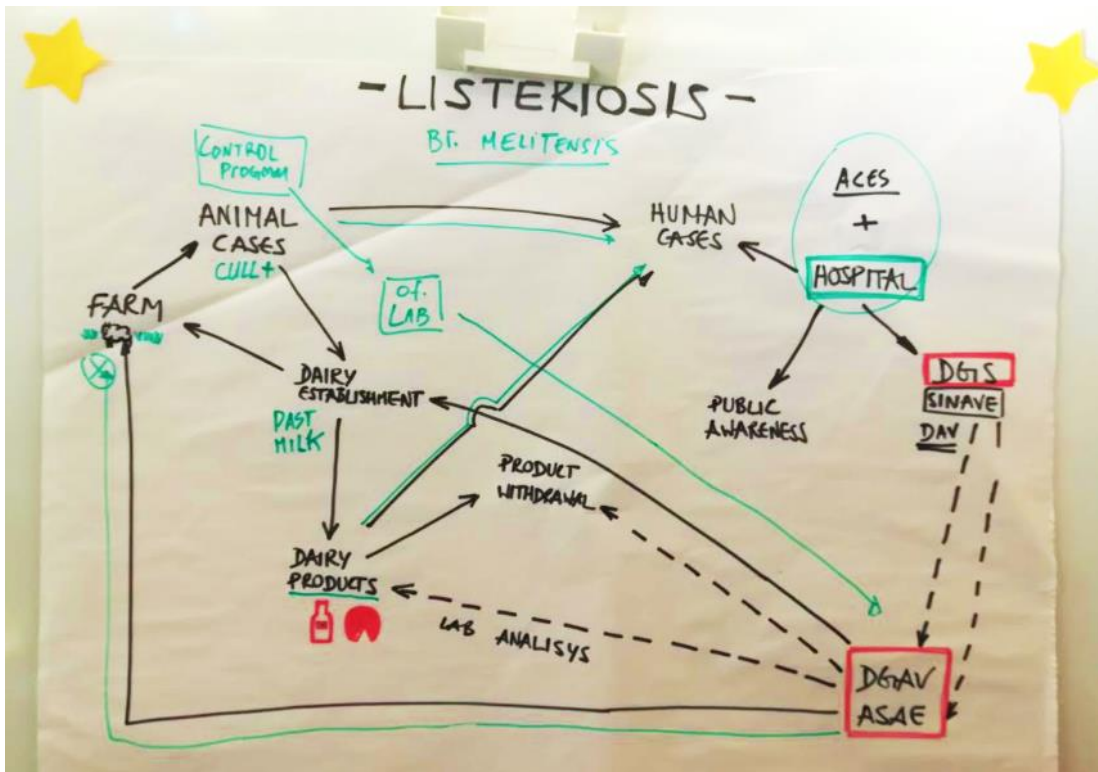 - LISTERIOSIS -
BR. MELITENSIS
CONTROL
PROGRAM
ANIMAL
CASES
CULL+
FARM
HUMAN
CASES
ACES
+
HOSPITAL
Of.
LAB
DAIRY
ESTABLISHMENT
PAST
MILK
PUBLIC
AWARENESS
DGS
SINAVE
DAV
PRODUCT
WITHDRAWAL
DAIRY
PRODUCTS
LAB ANALISYS
DGAV
ASAE